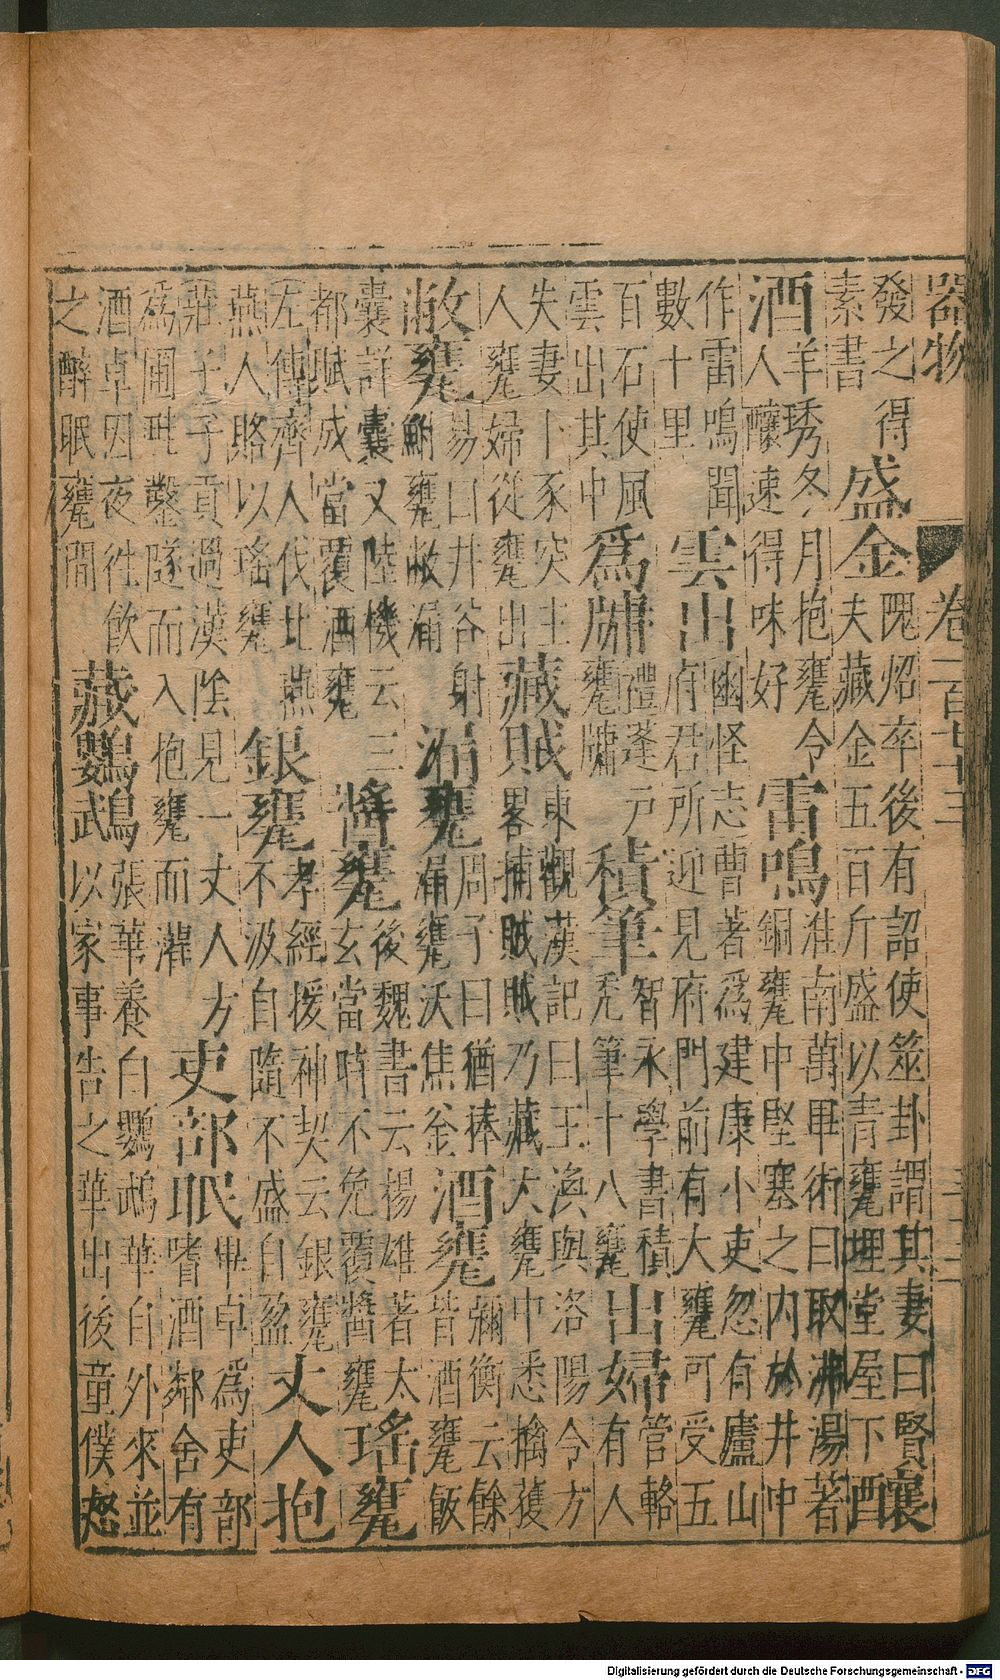 器物 卷一百七十三 三十二
發之得素書 盛金 隗炤卒後有詔使筮卦謂其妻曰賢夫藏金五百斤盛以青甕埋堂屋下 釀
酒 羊琇冬月抱甕令人釀速得味好 雷鳴 淮南萬畢術曰取沸湯著銅甕中堅塞之内於井中
作雷鳴聞數十里 雲出 幽怪志曹著為建康小吏忽有廬山府君所迎見府門前有大甕可受五
百石使風雲出其中 為牖 禮蓬戶甕牖 積筆 智永學書積禿筆十八甕 出婦 管輅有人
失妻卜豕突主人甕婦從甕出 藏賊 東觀漢記曰王渙與洛陽令方畧捕賊賊乃藏大甕中悉擒獲
敝甕 易曰井谷射鮒甕敝漏 漏甕 周子曰猶捧漏甕沃焦釜 酒甕 禰衡云餘皆酒甕飯
囊許囊又陸機云三都賦成當覆酒甕 醬甕 後魏書云楊雄著太玄當時不免覆醬甕 瑤甕
左傳齊人伐北燕燕人賂以瑤甕 銀甕 孝經援神契云銀甕不汲自隨不盛自盈 丈人抱
莊子子貢過漢陰見一丈人方為圃畦鑿隧而入抱甕而灌 吏部眠 畢卓為吏部嗜酒鄰舍有
酒卓因夜徃飲之醉眠甕間 藏鸚鵡 張華養白鸚鵡華自外來並以家事告之華出後童僕怒
Digitalisierung gefördert durch die Deutsche Forschungsgemeinschaft - DFG